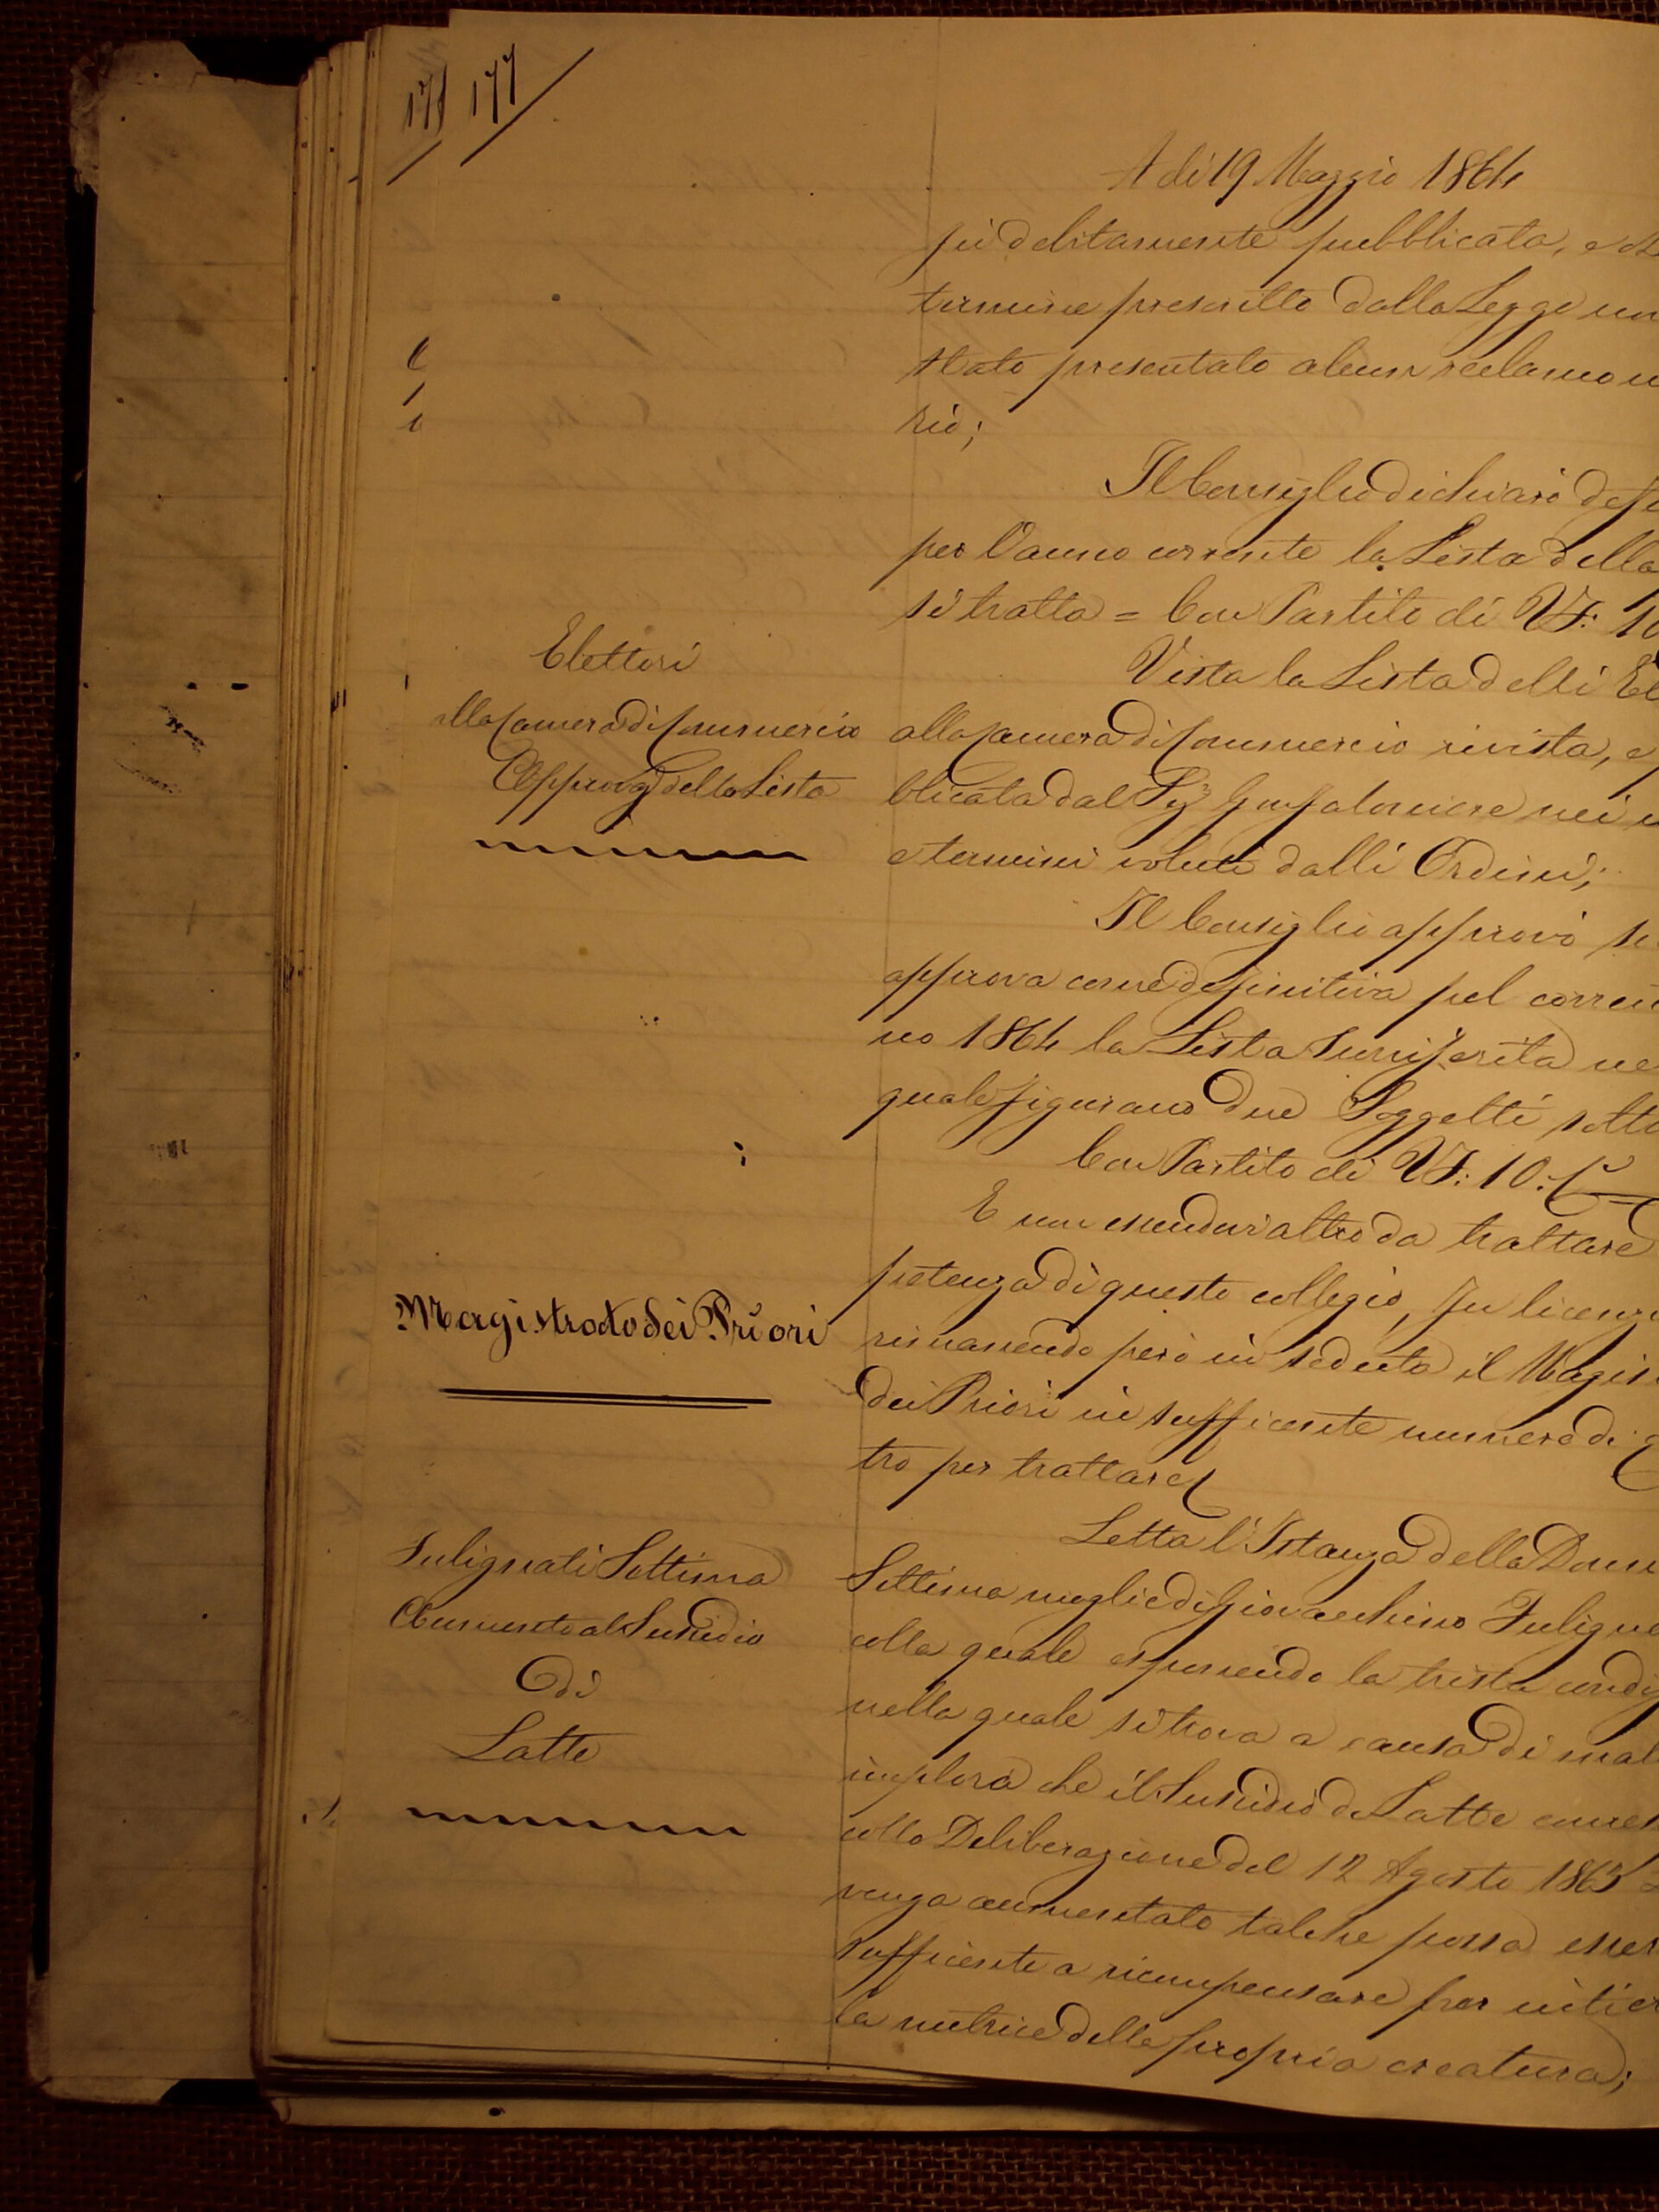 177
A di 19 Maggio 1864
fù debitamente pubblicata, e
termine prescritto dalla Legge
stato presentato alcun reclamo
rio;
Il Consiglio dichiarò
per l'anno corrente la Lista della
si tratta = Con Partito di Vf: 10
Elettori
alla Camera di Commercio
Approvaz dello Lista
Vista la Lista delli
alla Camera di Commercio rivista, e
blicata dal Sig Gonfaloniere nei
e termini voluti dalli Ordini;
Il Consiglio approvò
approva come definitiva pel
no 1864 la Lista surriferita
quale figurano due Soggetti
Con Partito di Vf: 10:
E non essendovi altro da trattare
petenza di questo collegio, fu
Magistrato dei Priori
rimanendo però in seduta il
dei Priori in sufficente numero di
tro per trattare
Fulignati Settima
Aumento al Sussidio
di
Latte
Letta l'Istanza della
Settima moglie di Giovacchino
colla quale esponendo la trista
nella quale si trova a causa di
implora che il Sussidio di Latte
colla Deliberazione del 12 Agosto 1863
venga aumentato talche possa
sufficente a ricompensare per
la nutrice della propria creatura;